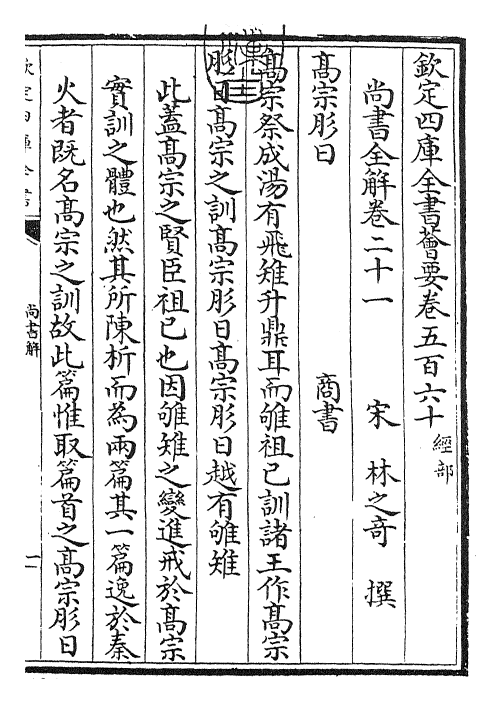 欽定四庫全書薈要卷五百六十 經部
尚書全解卷二十一 宋 林之奇 撰
髙宗肜日 商書
髙宗祭成湯有飛雉升鼎耳而雊祖已訓諸王作髙宗
肜日髙宗之訓髙宗肜日髙宗肜日越有雊雉
此蓋髙宗之賢臣祖已也因雊雉之變進戒於髙宗
實訓之體也然其所陳析而為兩篇其一篇逸於秦
火者既名髙宗之訓故此篇惟取篇首之髙宗肜日
欽定四庫全書
尚書解
一